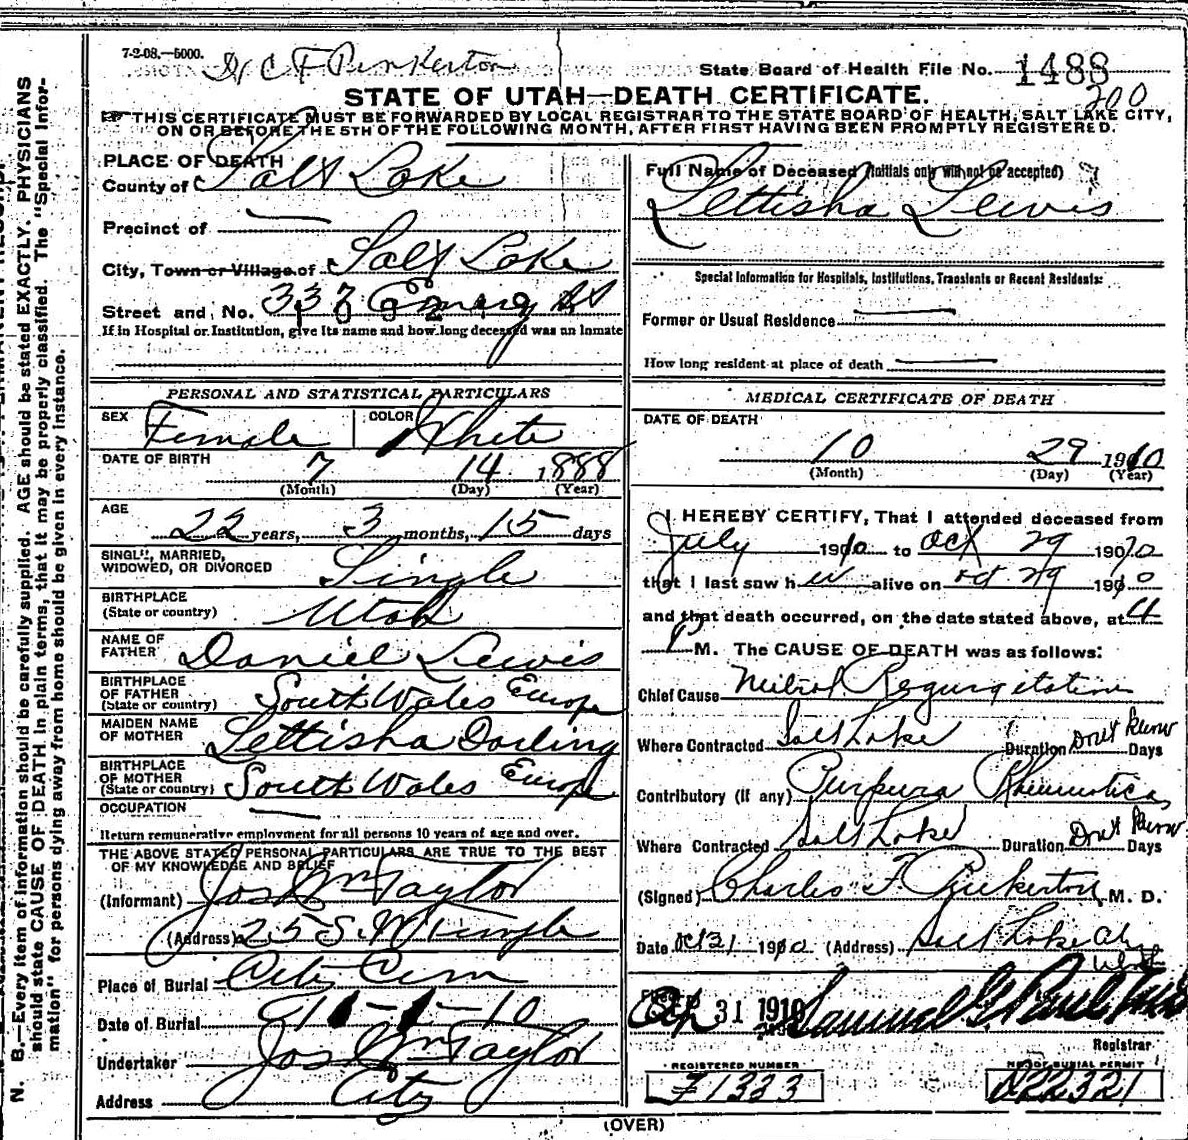 7-2-08.—5000.
Dr C F Pinkerton
State Board of Health File No. 1488
200
STATE OF UTAH—DEATH CERTIFICATE.
THIS CERTIFICATE MUST BE FORWARDED BY LOCAL REGISTRAR TO THE STATE BOARD OF HEALTH, SALT LAKE CITY,
ON OR BEFORE THE 5TH OF THE FOLLOWING MONTH, AFTER FIRST HAVING BEEN PROMPTLY REGISTERED.
PLACE OF DEATH
County of Salt Lake
Precinct of —
City, Town or Village of Salt Lake
Street and No. 337 Emery St
If in Hospital or Institution, give its name and how long deceased was an inmate
Full Name of Deceased (Initials only will not be accepted)
Lettisha Lewis
Special Information for Hospitals, Institutions, Transients or Recent Residents:
Former or Usual Residence —
How long resident at place of death —
PERSONAL AND STATISTICAL PARTICULARS
SEX Female COLOR White
DATE OF BIRTH 7 14 1888
(Month) (Day) (Year)
AGE
22 years, 3 months, 15 days
SINGLE, MARRIED,
WIDOWED, OR DIVORCED Single
BIRTHPLACE
(State or country) Utah
NAME OF
FATHER Daniel Lewis
BIRTHPLACE
OF FATHER
(State or country) South Wales Europe
MAIDEN NAME
OF MOTHER Lettisha Darling
BIRTHPLACE
OF MOTHER
(State or country) South Wales Europe
OCCUPATION —
Return remunerative employment for all persons 10 years of age and over.
THE ABOVE STATED PERSONAL PARTICULARS ARE TRUE TO THE BEST
OF MY KNOWLEDGE AND BELIEF
(Informant) Jos Wm Taylor
(Address) 25 S. W Temple
Place of Burial City Cem
Date of Burial 11-1-10
Undertaker Jos Wm Taylor
Address City
MEDICAL CERTIFICATE OF DEATH
DATE OF DEATH
10 29 1910
(Month) (Day) (Year)
I HEREBY CERTIFY, That I attended deceased from
July 1910 to Oct 29 1910
that I last saw her alive on Oct 29 1910
and that death occurred, on the date stated above, at 4
P M. The CAUSE OF DEATH was as follows:
Chief Cause Mitral Regurgitation
Where Contracted Salt Lake Duration Don't Know Days
Contributory (if any) Purpura Rheumatica
Where Contracted Salt Lake Duration Don't Know Days
(Signed) Charles F. Pinkerton M. D.
Date Oct 31 1910 (Address) Salt Lake City
Utah
Filed 31 1910
Registrar
REGISTERED NUMBER
F1333
NO. OF BURIAL PERMIT
22321
(OVER)
N. B.—Every item of information should be carefully supplied. AGE should be stated EXACTLY. PHYSICIANS
should state CAUSE OF DEATH in plain terms, that it may be properly classified. The "Special Infor-
mation" for persons dying away from home should be given in every instance.